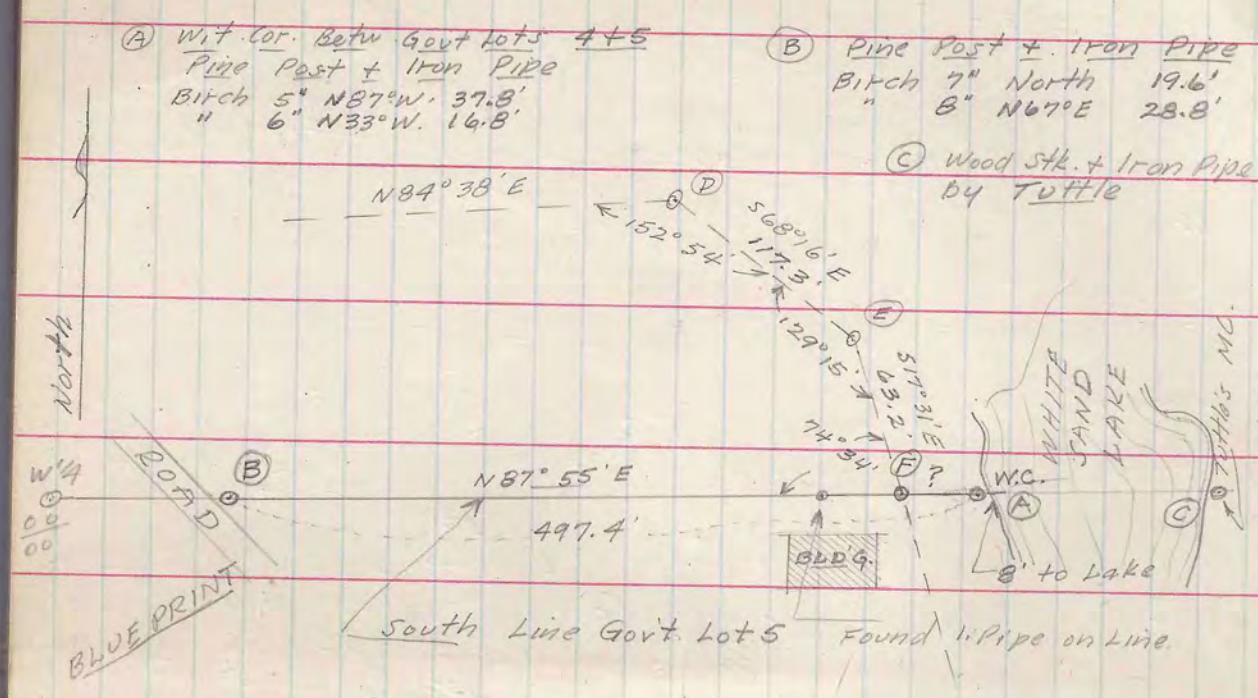 Ⓐ Wit. Cor. Betw Govt Lots 4+5
Pine Post + Iron Pipe
Birch 5" N87°W. 37.8'
" 6" N33°W. 16.8'
Ⓑ Pine Post + Iron Pipe
Birch 7" North 19.6'
" 8" N67°E 28.8'
Ⓒ Wood Stk. + Iron Pipe
by Tuttle
North
N84°38'E
Ⓓ
152°54'
S68°16'E
117.3'
Ⓔ
129°15'
S17°31'E
63.2'
74°34'
Ⓕ
?
WHITE
SAND
LAKE
Tuttle's MC.
W'4
00
00
ROAD
Ⓑ
N87°55'E
497.4'
W.C.
Ⓐ
Ⓒ
BLD'G.
8' to Lake
BLUE PRINT
South Line Gov't. Lot 5
Found I. Pipe on Line.